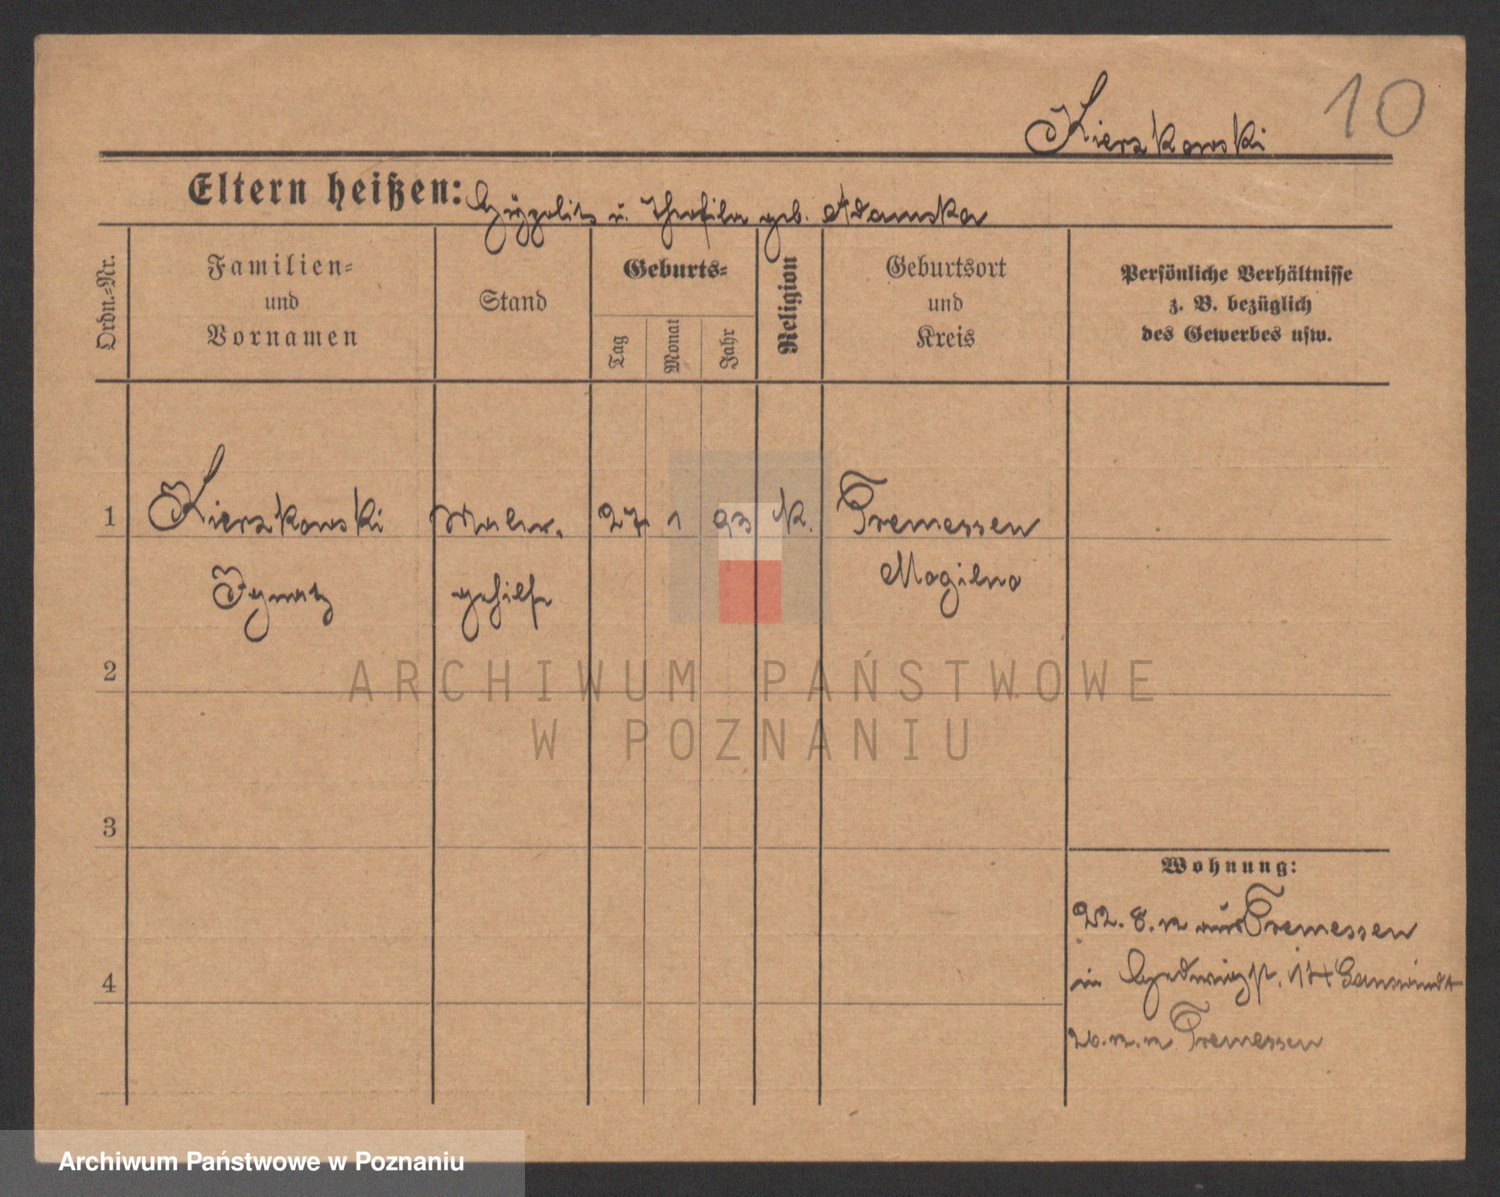 10
Kierzkowski
Eltern heißen: Hyppolit u. Theofila geb. Adamska
Ordn.-Nr.
Familien-
und
Vornamen
Stand
Geburts-
Tag
Monat
Jahr
Religion
Geburtsort
und
Kreis
Persönliche Verhältnisse
z. B. bezüglich
des Gewerbes usw.
1 Kierzkowski Maler- 27 1 93 K. Tremessen
Ignatz gehilfe Mogilno
2
ARCHIWUM PAŃSTWOWE
W POZNANIU
3
Wohnung:
22. 8. 12 aus Tremessen
in Hedwigst. 14
4
Tremessen
Archiwum Państwowe w Poznaniu